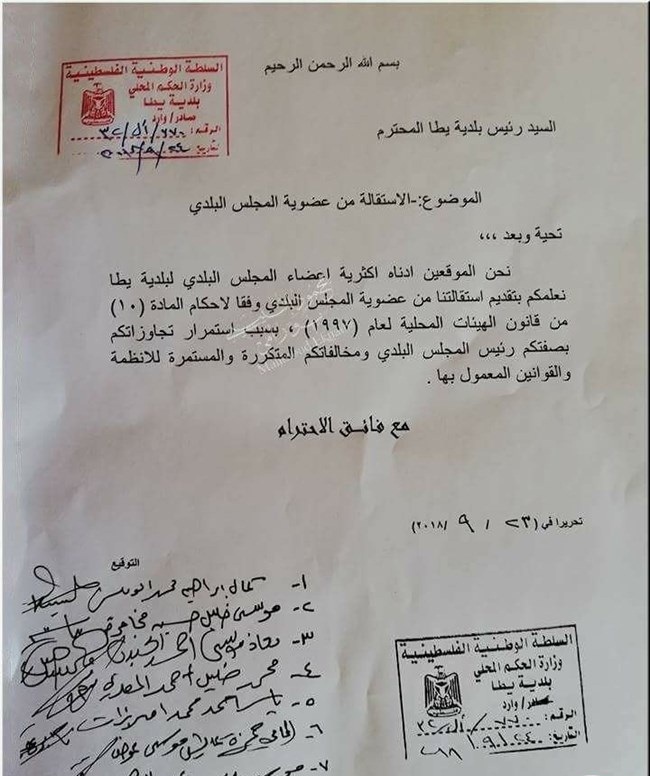 بسم الله الرحمن الرحيم
السلطة الوطنية الفلسطينية
وزارة الحكم المحلي
بلدية يطا
صادر/وارد
الرقم:
السيد رئيس بلدية يطا المحترم
الموضوع:-الاستقالة من عضوية المجلس البلدي
تحية وبعد ،،،
نحن الموقعين ادناه اكثرية اعضاء المجلس البلدي لبلدية يطا
نعلمكم بتقديم استقالتنا من عضوية المجلس البلدي وفقا لاحكام المادة (١٠)
من قانون الهيئات المحلية لعام (١٩٩٧) ، بسبب استمرار تجاوزاتكم
بصفتكم رئيس المجلس البلدي ومخالفاتكم المتكررة والمستمرة للانظمة
والقوانين المعمول بها .
مع فائق الاحترام
تحريرا في (٢٣ / ٩ /٢٠١٨)
التوقيع
١- كمال ابراهيم محمد
٢- موسى خليل
٣- معاذ موسى احمد
٤- محمد خليل أحمد
٥- ياسر محمد
٦-
٧-
السلطة الوطنية الفلسطينية
وزارة الحكم المحلي
بلدية يطا
صادر/وارد
الرقم:
التاريخ: